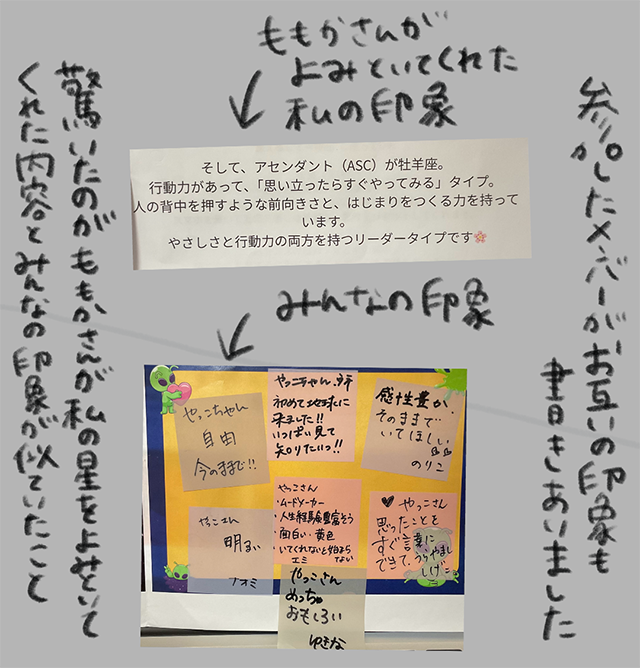 ももかさんが
よみといてくれた
私の印象
参加したメンバーがお互いの印象も
書きあいました
そして、アセンダント（ASC）が牡羊座。
行動力があって、「思い立ったらすぐやってみる」タイプ。
人の背中を押すような前向きさと、はじまりをつくる力を持って
います。
やさしさと行動力の両方を持つリーダータイプです🌸
みんなの印象
やっこちゃん
自由
今のままで!!
やっこちゃん
初めて地球に
来ました!!
いっぱい見て
知りたいっ!!
感性豊か、
そのままで
いてほしい
のりこ
やっこさん
明るい
ナオミ
やっこさん
・ムードメーカー
・人生経験豊富そう
・面白い・黄色
・いてくれないと始まら
ない
エミ
♥ やっこさん
思ったことを
すぐ言葉に
できて、うらやまし
しげこ
やっこさん
めっちゃ
おもしろい
ゆきな
驚いたのがももかさんが私の星をよみといて
くれた内容とみんなの印象が似ていたこと